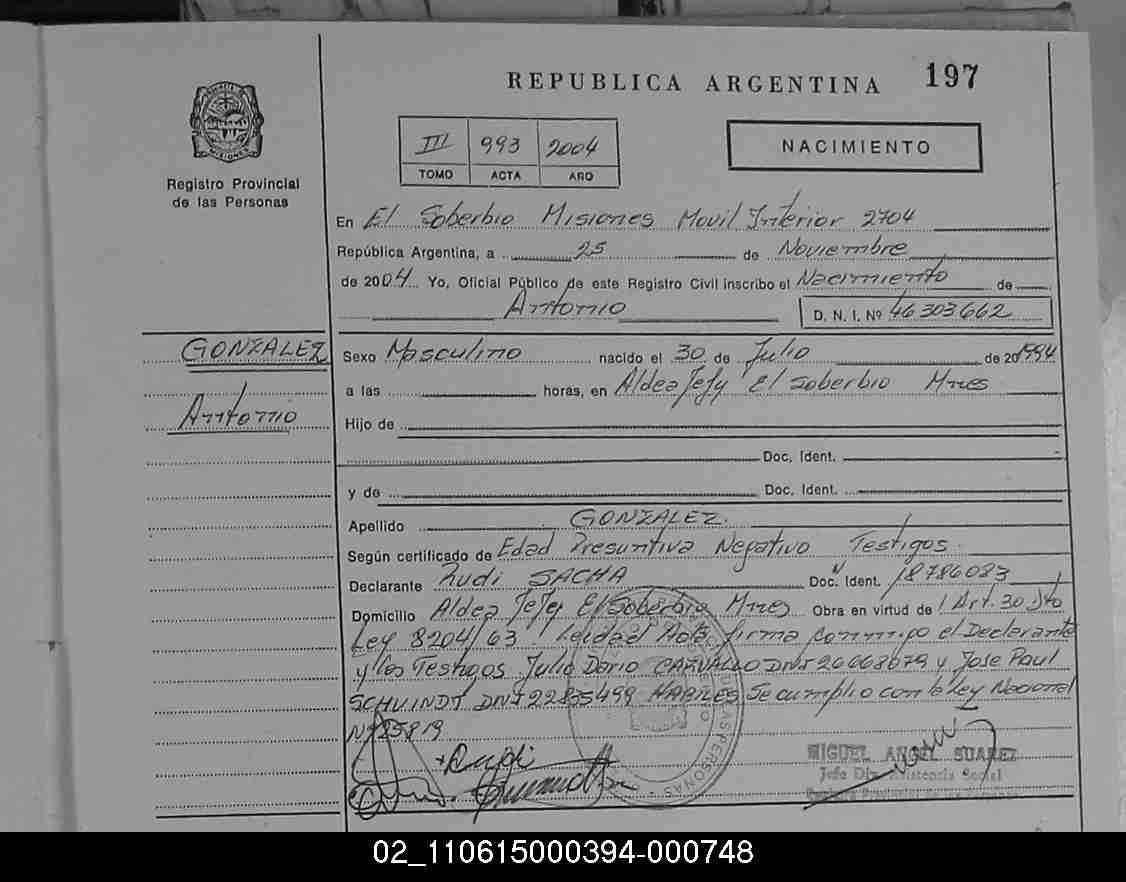 REPUBLICA ARGENTINA 197
III 993 2004
TOMO ACTA AÑO
NACIMIENTO
Registro Provincial
de las Personas
En El Soberbio Misiones Movil Interior 2704
República Argentina, a 25 de Noviembre
de 2004 Yo, Oficial Público de este Registro Civil inscribo el Nacimiento de
Antonio D. N. I. Nº 46303662
GONZALEZ
Antonio
Sexo Masculino nacido el 30 de Julio de 201994
a las horas, en Aldea Jejy El Soberbio Mnes
Hijo de
Doc. Ident.
y de Doc. Ident.
Apellido GONZALEZ
Según certificado de Edad Presuntiva Negativo Testigos
Declarante Rudi SACHA Doc. Ident. 18786083
Domicilio Aldea Jejy El Soberbio Mnes Obra en virtud de Art. 30 Dto
Ley 8204/63 Leida el Acta firma conmigo el Declarante
y los Testigos Julio Dario CARVALLO DNI 26068079 y Jose Raul
SCHUINDT DNI 22835499 HABILES Se cumplio con la Ley Nacional
Nº 25819
Rudi
MIGUEL ANGEL SUAREZ
Jefe Div. Asistencia Social
02_110615000394-000748